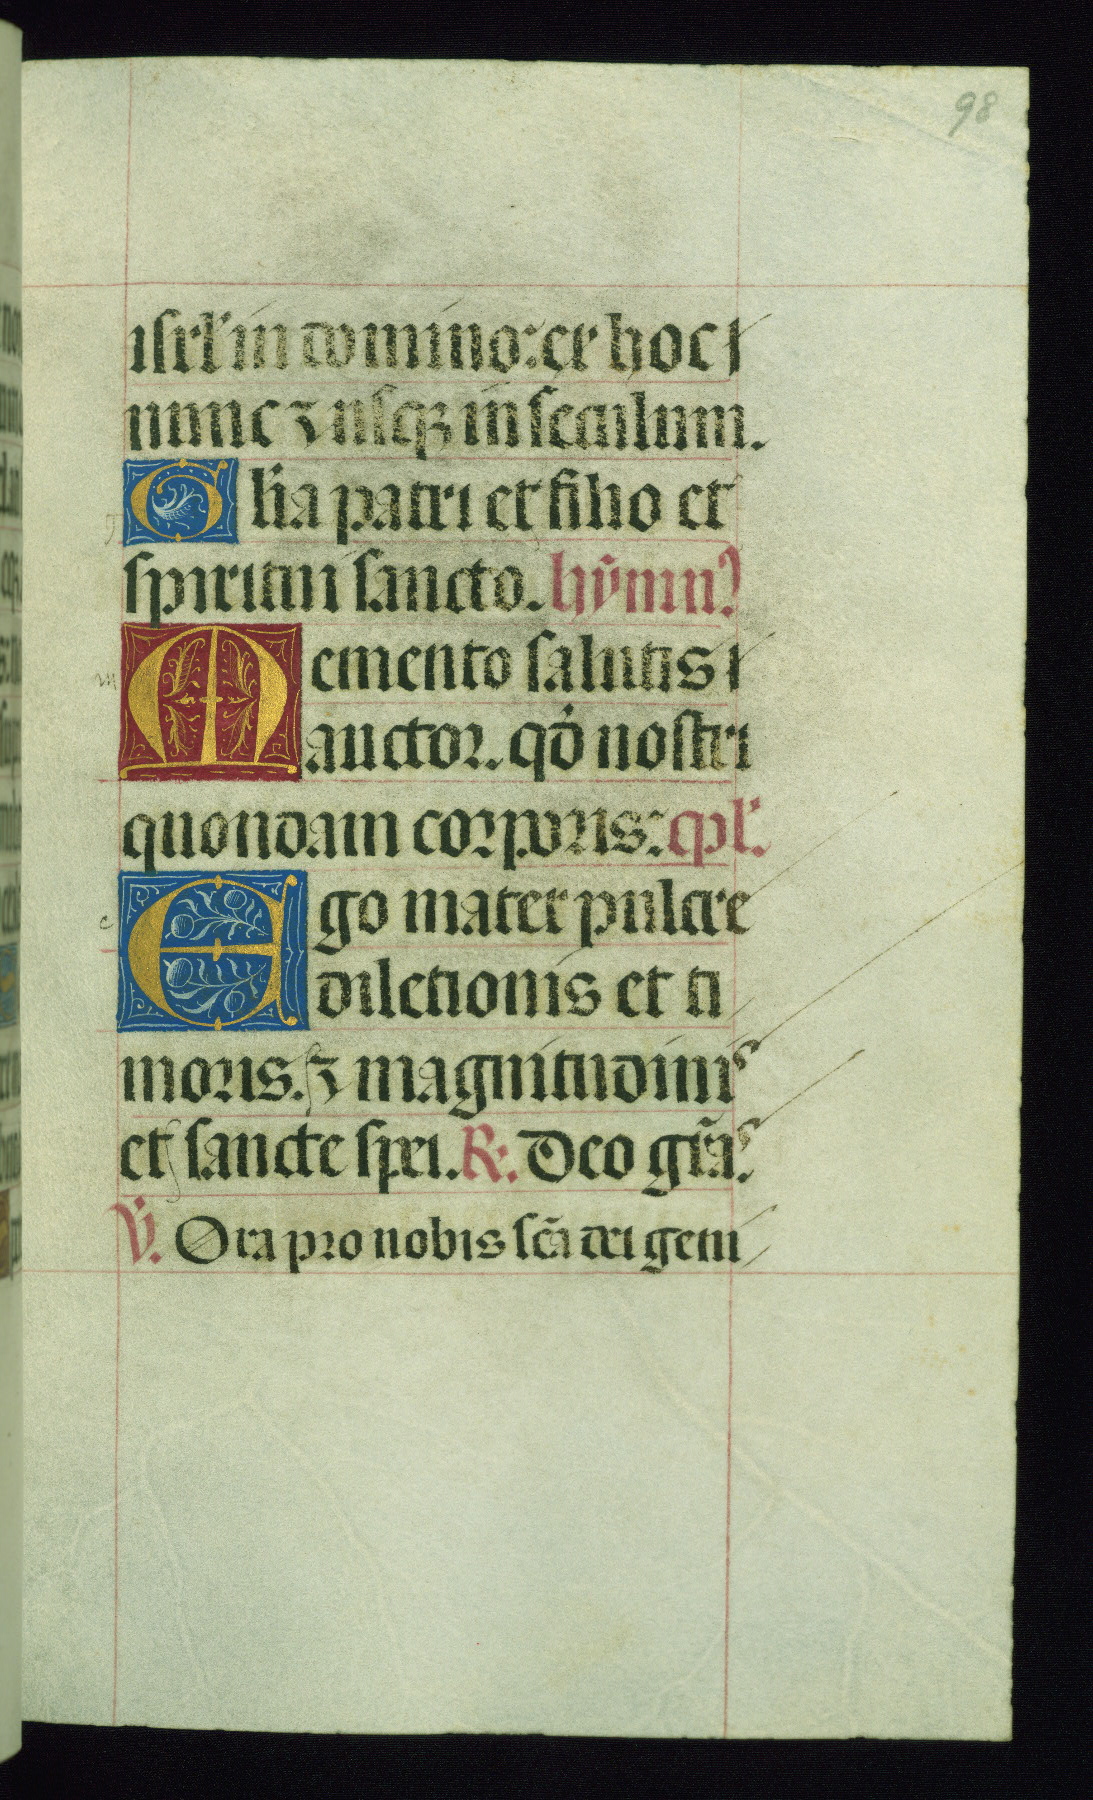 98
isrl̃ in domino: ex hoc
nunc ⁊ usqꝫ in seculum.
Glia patri et filio et
spiritui sancto. hỹmnꝰ
Memento salutis
auctor. qđ nostri
quondam corporis: cpl̃.
Ego mater pulcre
diletionis et ti
moris. ⁊ magnitudinis
et sancte spei. R̃. Deo gr̃as
V̇. Ora pro nobis sc̃a dei geni